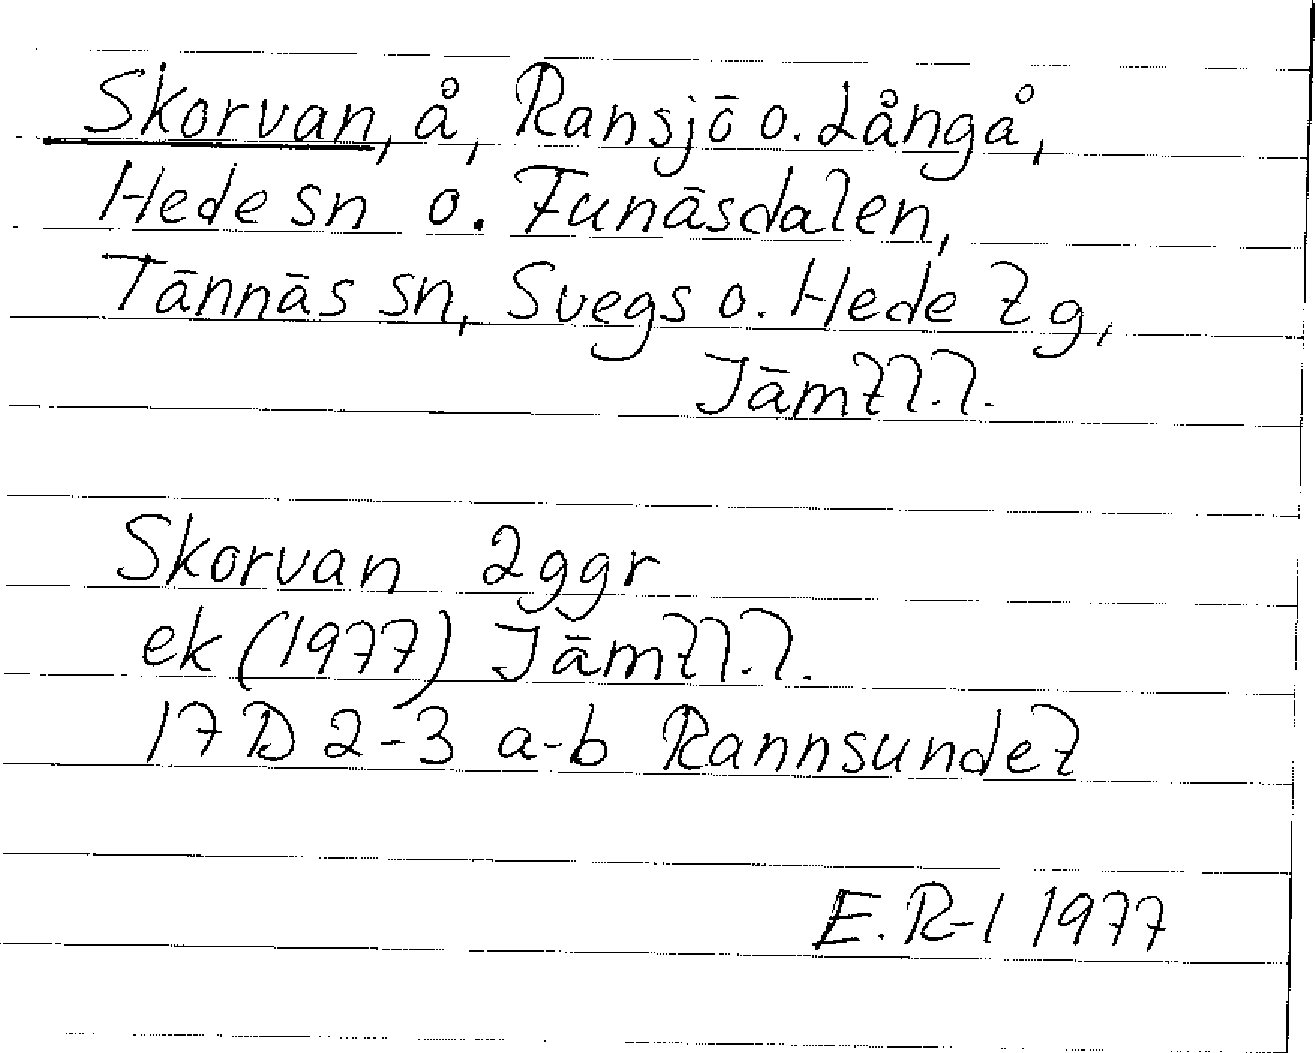 Skorvan, å, Ransjö o. Långå,
Hede sn o. Funäsdalen,
Tännäs sn, Svegs o. Hede tg,
Jämtl.l.
Skorvan 2ggr
ek (1977) Jämtl.l.
17 D 2-3 a-b Rannsundet
E. R-l 1977